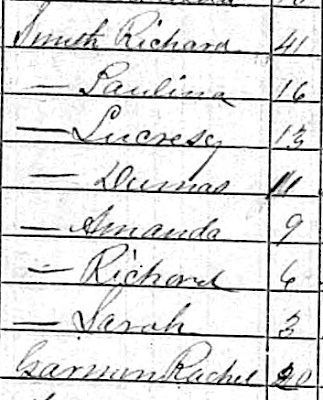 Smith Richard 41
— Paulina 16
— Lucresy 13
— Dumas 11
— Amanda 9
— Richard 6
— Sarah 3
Garmon Rachel 20